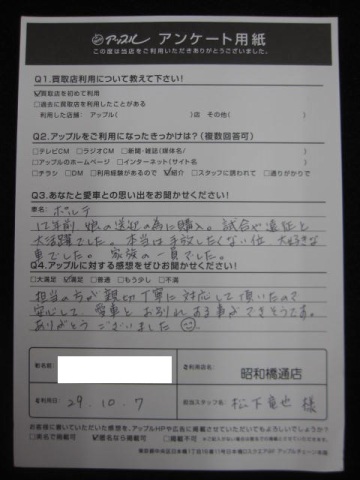 アップル アンケート用紙
この度は当店をご利用いただきありがとうございました。
Q1.買取店利用について教えて下さい!
☑買取店を初めて利用
□過去に買取店を利用したことがある
利用した店舗:アップル( )店 その他( )
Q2.アップルをご利用になったきっかけは?(複数回答可)
□テレビCM □ラジオCM □新聞・雑誌(媒体名/ )
□アップルのホームページ □インターネット(サイト名 )
□チラシ □DM □利用経験があるので ☑紹介 □スタッフに誘われて □通りがかりで
Q3.あなたと愛車との思い出をお聞かせください!
車名: ポルテ
12年前 娘の送迎の為に購入。試合や遠征と
大活躍でした。本当は手放したくない位 大好きな
車でした。家族の一員でした。
Q4.アップルに対する感想をぜひお聞かせください!
□大満足 ☑満足 □普通 □もう少し □不満
担当の方が親切丁寧に対応して頂いたので
安心して、愛車とお別れする事ができそうです。
ありがとうございました
■お名前
■ご利用店名 昭和橋通店
■ご利用日 29.10.7
担当スタッフ名 松下竜也 様
お客様に書いていただいた感想を、アップルHPや広告に掲載させていただいてもよろしいでしょうか?
□実名で掲載可 ☑匿名なら掲載可 □掲載不可